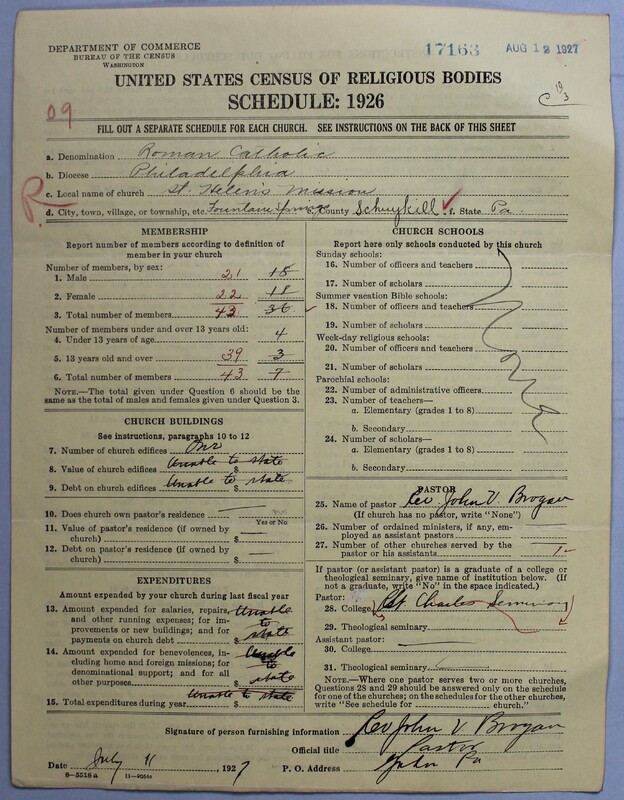 DEPARTMENT OF COMMERCE
BUREAU OF THE CENSUS
WASHINGTON
17163 AUG 12 1927
UNITED STATES CENSUS OF RELIGIOUS BODIES
SCHEDULE: 1926
09
FILL OUT A SEPARATE SCHEDULE FOR EACH CHURCH. SEE INSTRUCTIONS ON THE BACK OF THIS SHEET
a. Denomination Roman Catholic
b. Diocese Philadelphia
R c. Local name of church St. Helen's Mission
d. City, town, village, or township, etc. Fountain Springs e. County Schuylkill f. State Pa.
MEMBERSHIP
Report number of members according to definition of
member in your church
Number of members, by sex:
1. Male 21 18
2. Female 22 18
3. Total number of members 43 36
Number of members under and over 13 years old:
4. Under 13 years of age 4
5. 13 years old and over 39 3
6. Total number of members 43 7
NOTE.—The total given under Question 6 should be
same as the total of males and females given under Question 3.
CHURCH BUILDINGS
See instructions, paragraphs 10 to 12
7. Number of church edifices One
8. Value of church edifices $ Unable to state
9. Debt on church edifices $ Unable to state
10. Does church own pastor's residence
Yes or No
11. Value of pastor's residence (if owned by
church) $
12. Debt on pastor's residence (if owned by
church) $
EXPENDITURES
Amount expended by your church during last fiscal year
13. Amount expended for salaries, repairs, Unable
and other running expenses; for im- to
provements or new buildings; and for
payments on church debt $ state
14. Amount expended for benevolences, in- Unable
cluding home and foreign missions; for to
denominational support; and for all
other purposes $ state
15. Total expenditures during year $ Unable to state
CHURCH SCHOOLS
Report here only schools conducted by this church
Sunday schools:
16. Number of officers and teachers
17. Number of scholars
Summer vacation Bible schools:
18. Number of officers and teachers
19. Number of scholars
Week-day religious schools:
20. Number of officers and teachers
21. Number of scholars
Parochial schools:
22. Number of administrative officers
23. Number of teachers—
a. Elementary (grades 1 to 8)
b. Secondary
24. Number of scholars—
a. Elementary (grades 1 to 8)
b. Secondary
PASTOR
25. Name of pastor Rev John V. Brogan
(If church has no pastor, write "None")
26. Number of ordained ministers, if any, em-
ployed as assistant pastors
27. Number of other churches served by the
pastor or his assistants 1
If pastor (or assistant pastor) is a graduate of a college or
theological seminary, give name of institution below. (If
not a graduate, write "No" in the space indicated.)
Pastor:
28. College St. Charles Seminary
29. Theological seminary
Assistant pastor:
30. College
31. Theological seminary
NOTE.—Where one pastor serves two or more churches,
Questions 28 and 29 should be answered only on the schedule
for one of the churches; on the schedules for the other churches,
write "See schedule for church."
Signature of person furnishing information Rev John V Brogan
Official title Pastor
Date July 11, 1927 P. O. Address Pa
6-5518 a